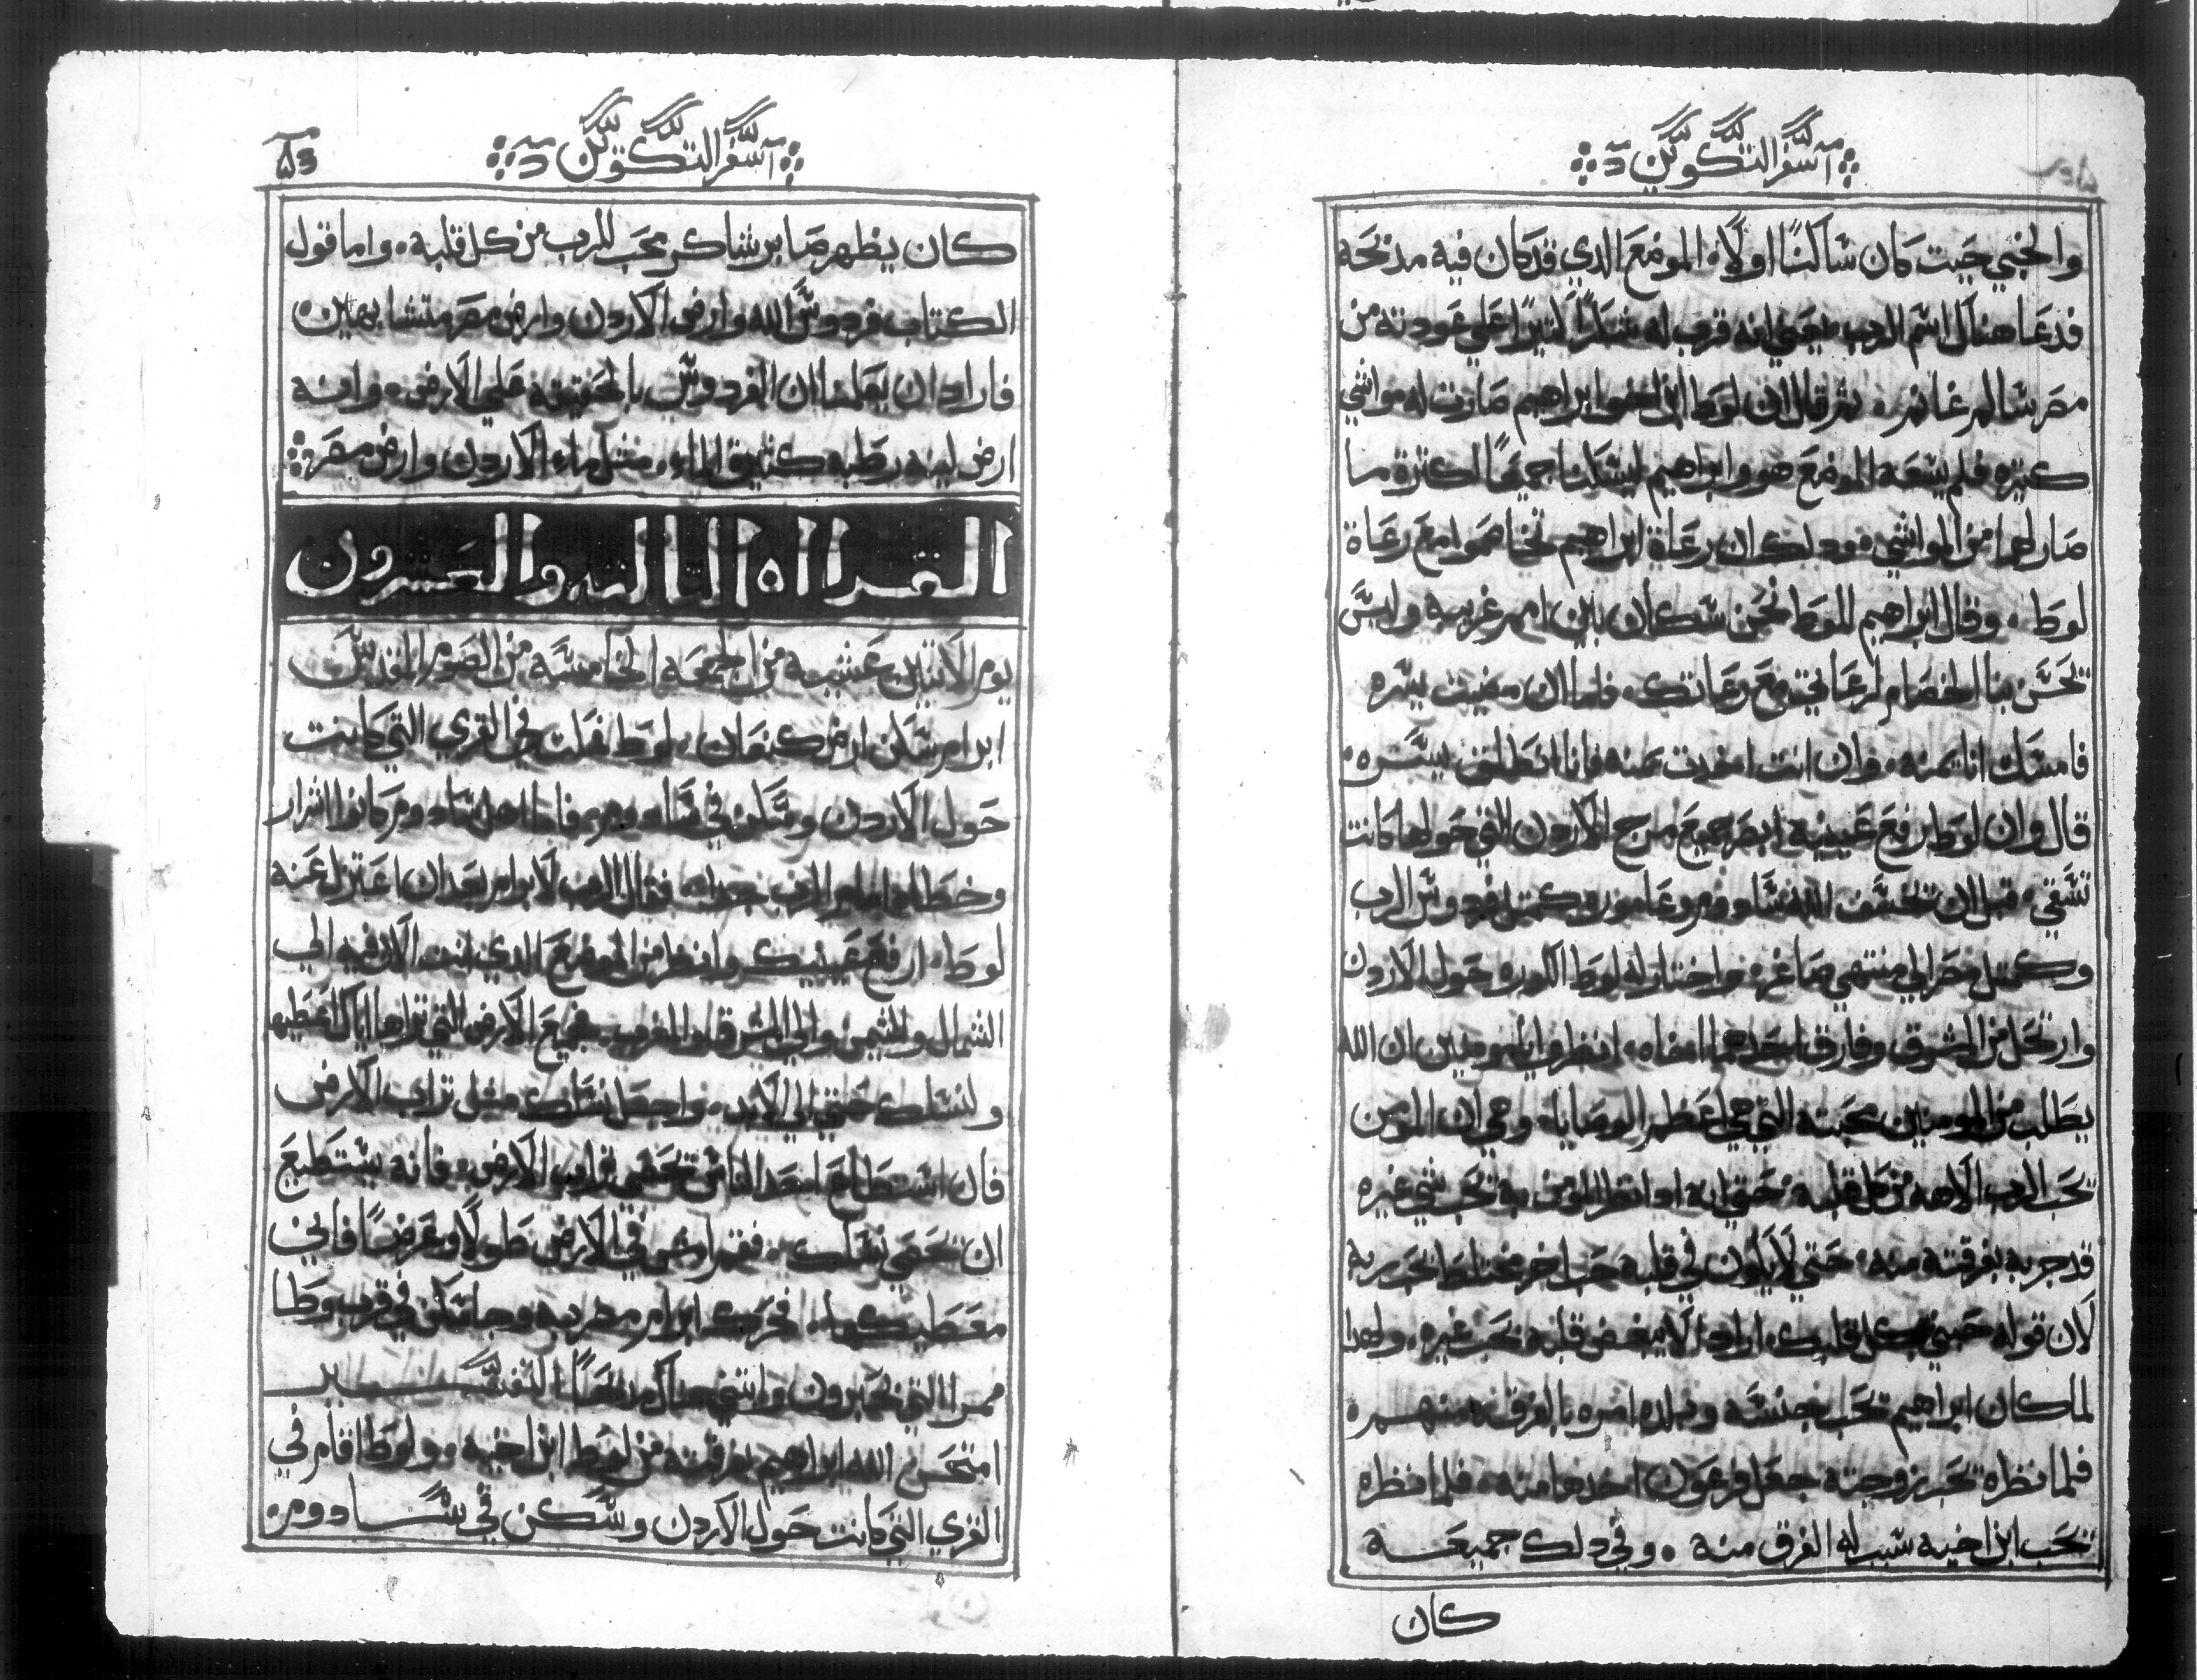 سفر التكوين
والخبي حيت كان ساكنًا اولاه الموضع الدي قد كان فيه مدبحه
فدعا هناك اسم الرب يعني انه قرب له شكرًا كتيرًا علي عودته من
مصر سالم غانم، تم قال ان لوط ابن اخو ابراهيم صارت له مواشي
كتيره فلم يسعه الموضع هو وابراهيم ليسكنا جميعًا لكترة ما
صار لهما من المواشي، ودلك ان رعاة ابراهيم تخاصموا مع رعاة
لوط، وقال ابراهيم للوط نحن سكان بين امم غريبه وليس
يحسن بنا الخصام لرعاتي مع رعاتك، فلما ان مضيت يسره
فامسك انا يمنه، وان انت اخدت يمنه فانا انطلق يسره،
قال وان لوط رفع عينيه ابصر جميع مرج الاردن التي حولها كانت
تسقي، قبل ان تخسف الله سادوم وعامورا وكمتل فردوس الرب
وكمتل مصر الي منتهي صاغره واختار له لوط الكوره حول الاردن
وارتحل من المشرق وفارق احدهما اخاه، انظروا يا مومنين ان الله
يطلب من المومنين محبته التي هي اعظم الوصايا، وهي ان المومن
يحب الرب الاهه من كل قلبه، حتي انه ادا نظر المومن به يحب شي غيره
قد جربه بفرقته منه، حتي لا يكون في قلبه حب اخر مختلط بحب ربه
لان قوله حبني بكل قلبك، اراد الا يبغض قلبه يحب غيره، ولهدا
لما كان ابراهيم يحب جنسه وبلده امره بالفرقه منهم،
فلما نظره يحب زوجته جعل فرعون اخدها منه، فلما نظره
يحب ابن اخيه سبب له الفرق منه، وفي دلك جميعه
كان
سفر التكوين
كان يظهر صابر شاكر محب للرب من كل قلبه، واما قول
الكتاب فردوس الله وارض الاردن وارض مصر متشابهين،
فاراد ان يعلمنا ان الفردوس بالحقيقه علي الارض، وانه
ارض لينه رطبه كتيرة الماء، متل ماء الاردن وارض مصر
القرااه التالته والعشرون
يوم الاتنين عشيه من الجمعه الخامسه من الصوم المقدس
ابرام سكن ارض كنعان، لوط فحلت في القري التي كانت
حول الاردن وسكن في سادوم، فاما اهل سادوم كانوا اشرار
وخطاه امام الرب جدا، فقال الرب لابرام بعد ان اعتزل عنه
لوط، ارفع عينيك وانظر من الموضع الدي انت الان فيه الي
الشمال والتيمن والي المشرق والمغرب، فجميع الارض التي تراها اياك اعطيها
ولنسلك حتي الي الابد، واجعل نسلك متل تراب الارض
فان استطاع احد الناس تحصي تراب الارض، فانه يستطيع
ان تحصي نسلك، فقم امش في الارض طولًا وعرضًا فاني
معطيكها، فحرك ابرام مضربه وجا سكن في قرب وطا
ممرا التي بحبرون وابتني هناك مدبحًا التفسير
امتحن الله ابراهيم بفرقته من لوط ابن اخيه، ولوط اقام في
القري التي كانت حول الاردن وسكن في سادوم،